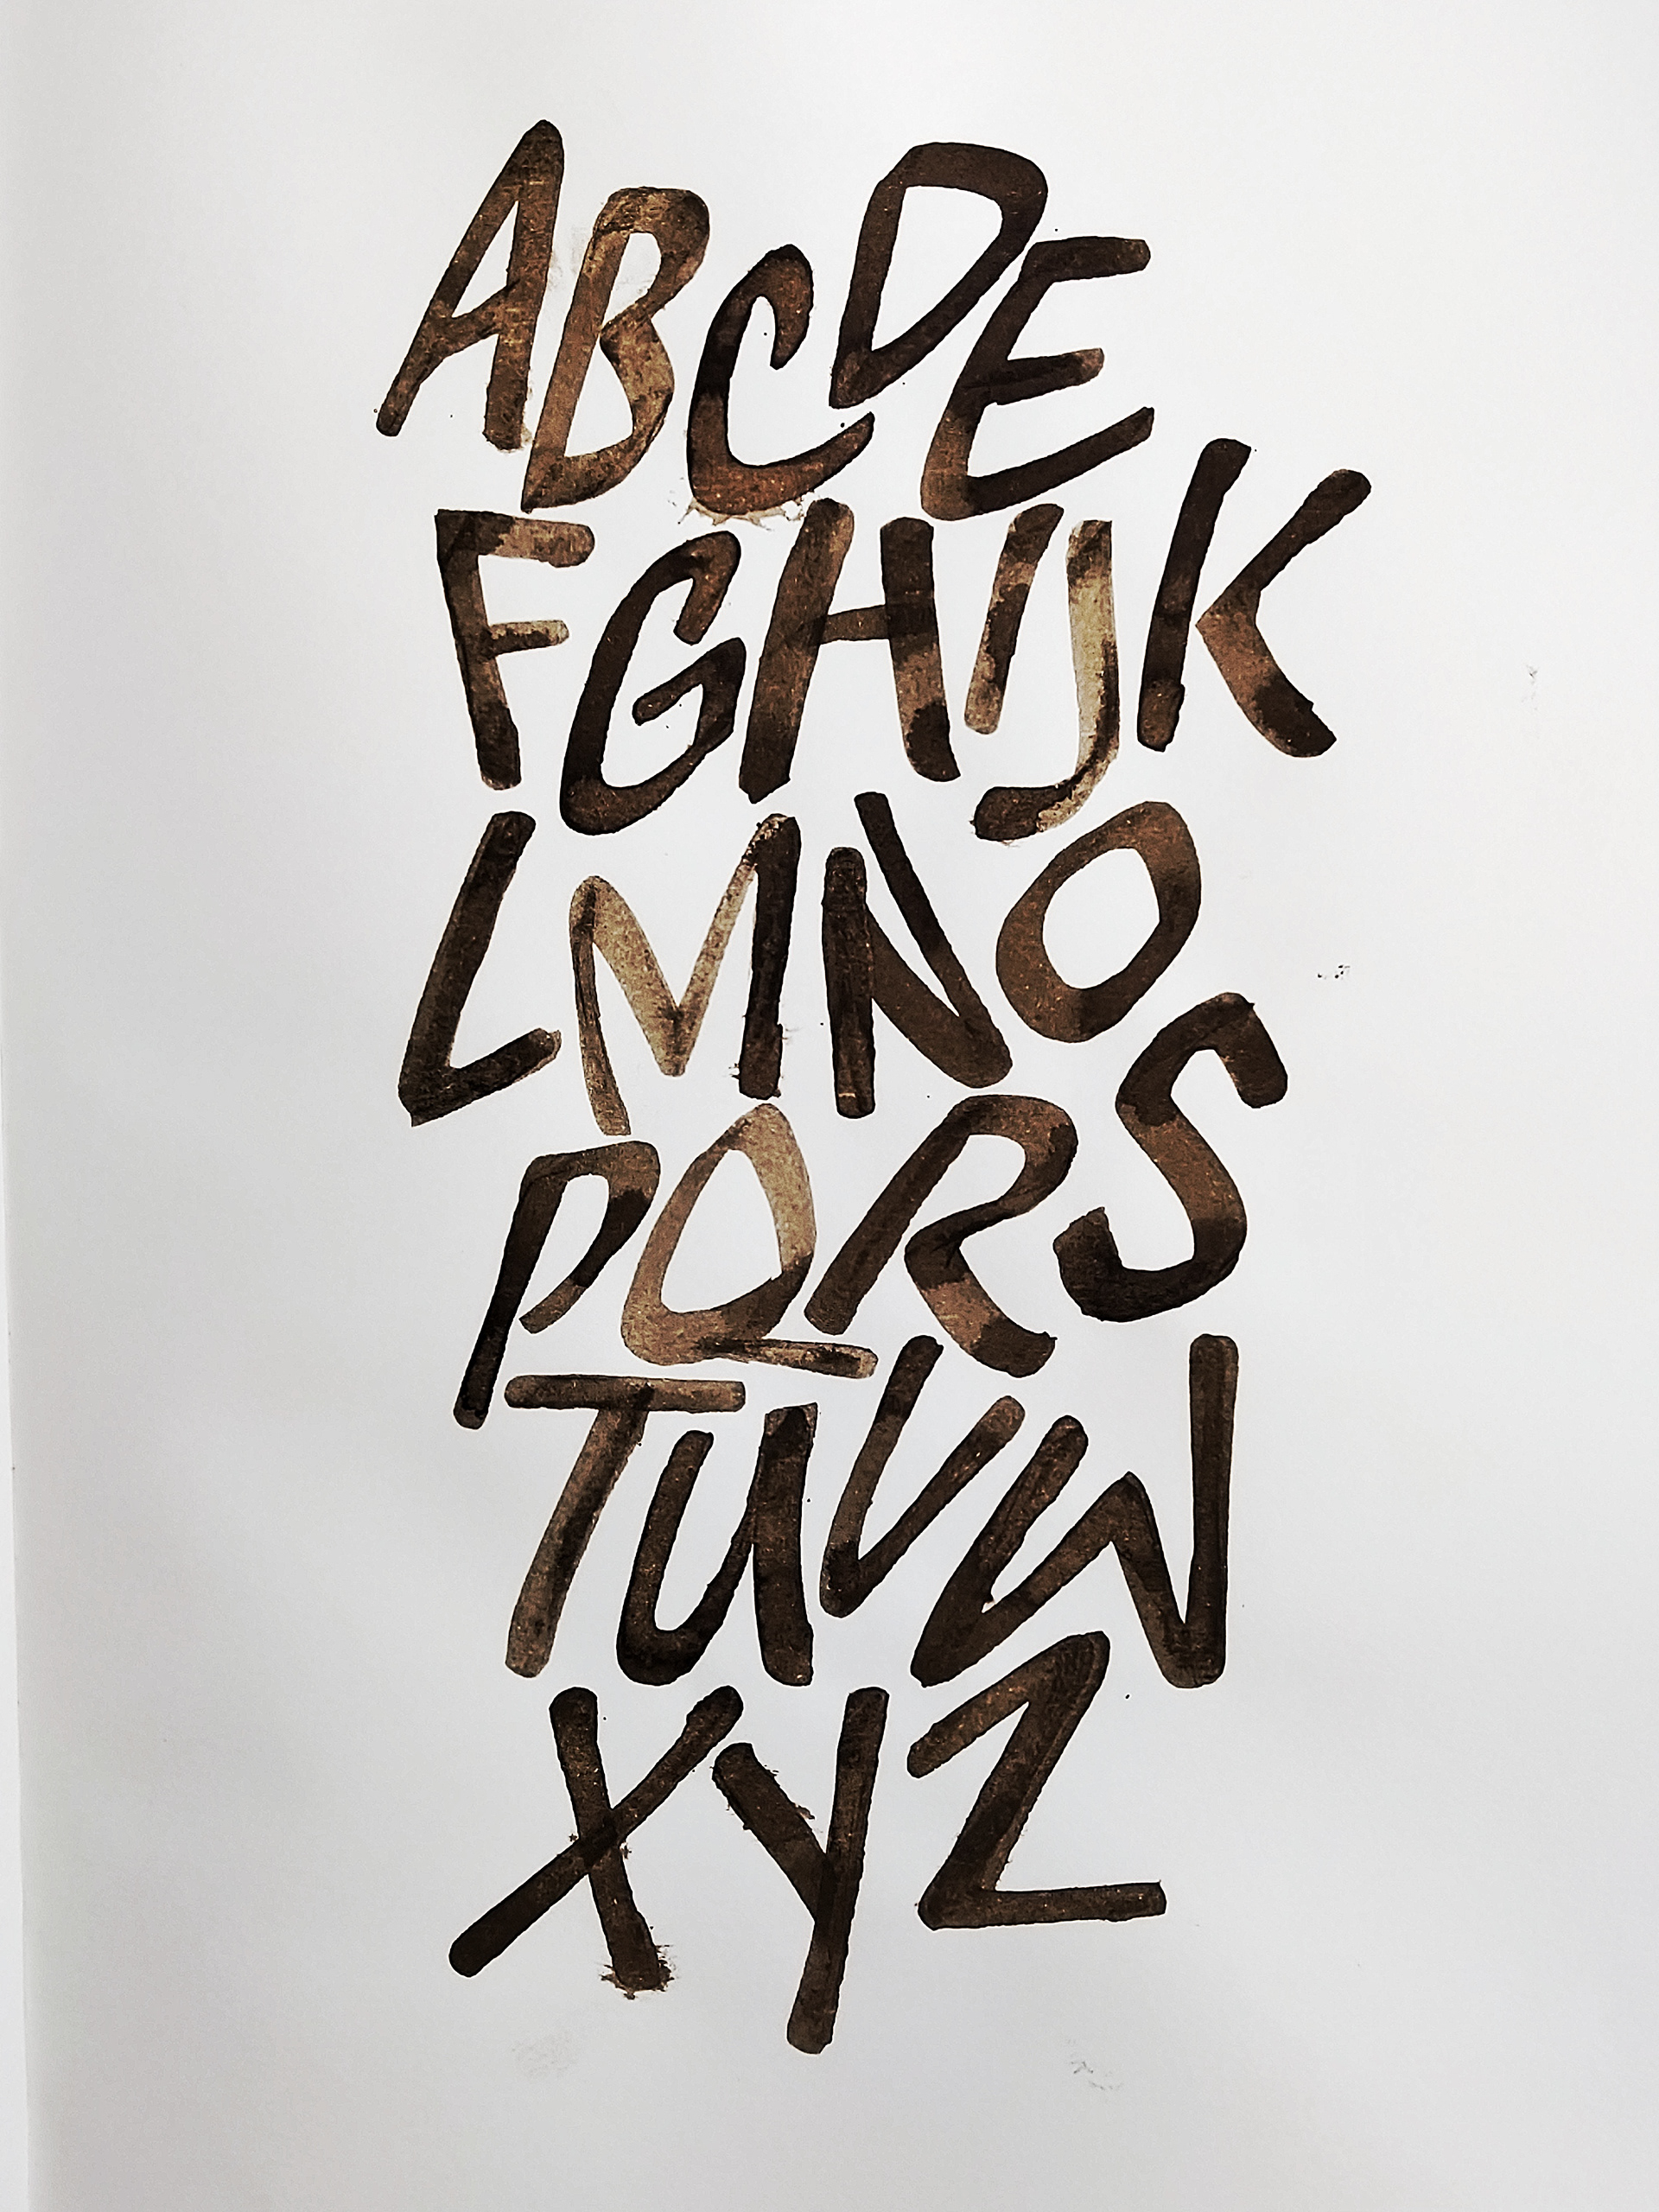 ABCDE
FGHIJK
LMNO
PQRS
TUVW
XYZ